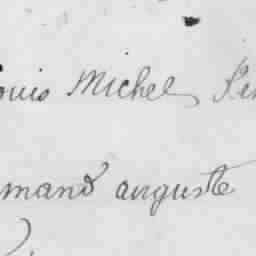 ouis Michel
mand auguste